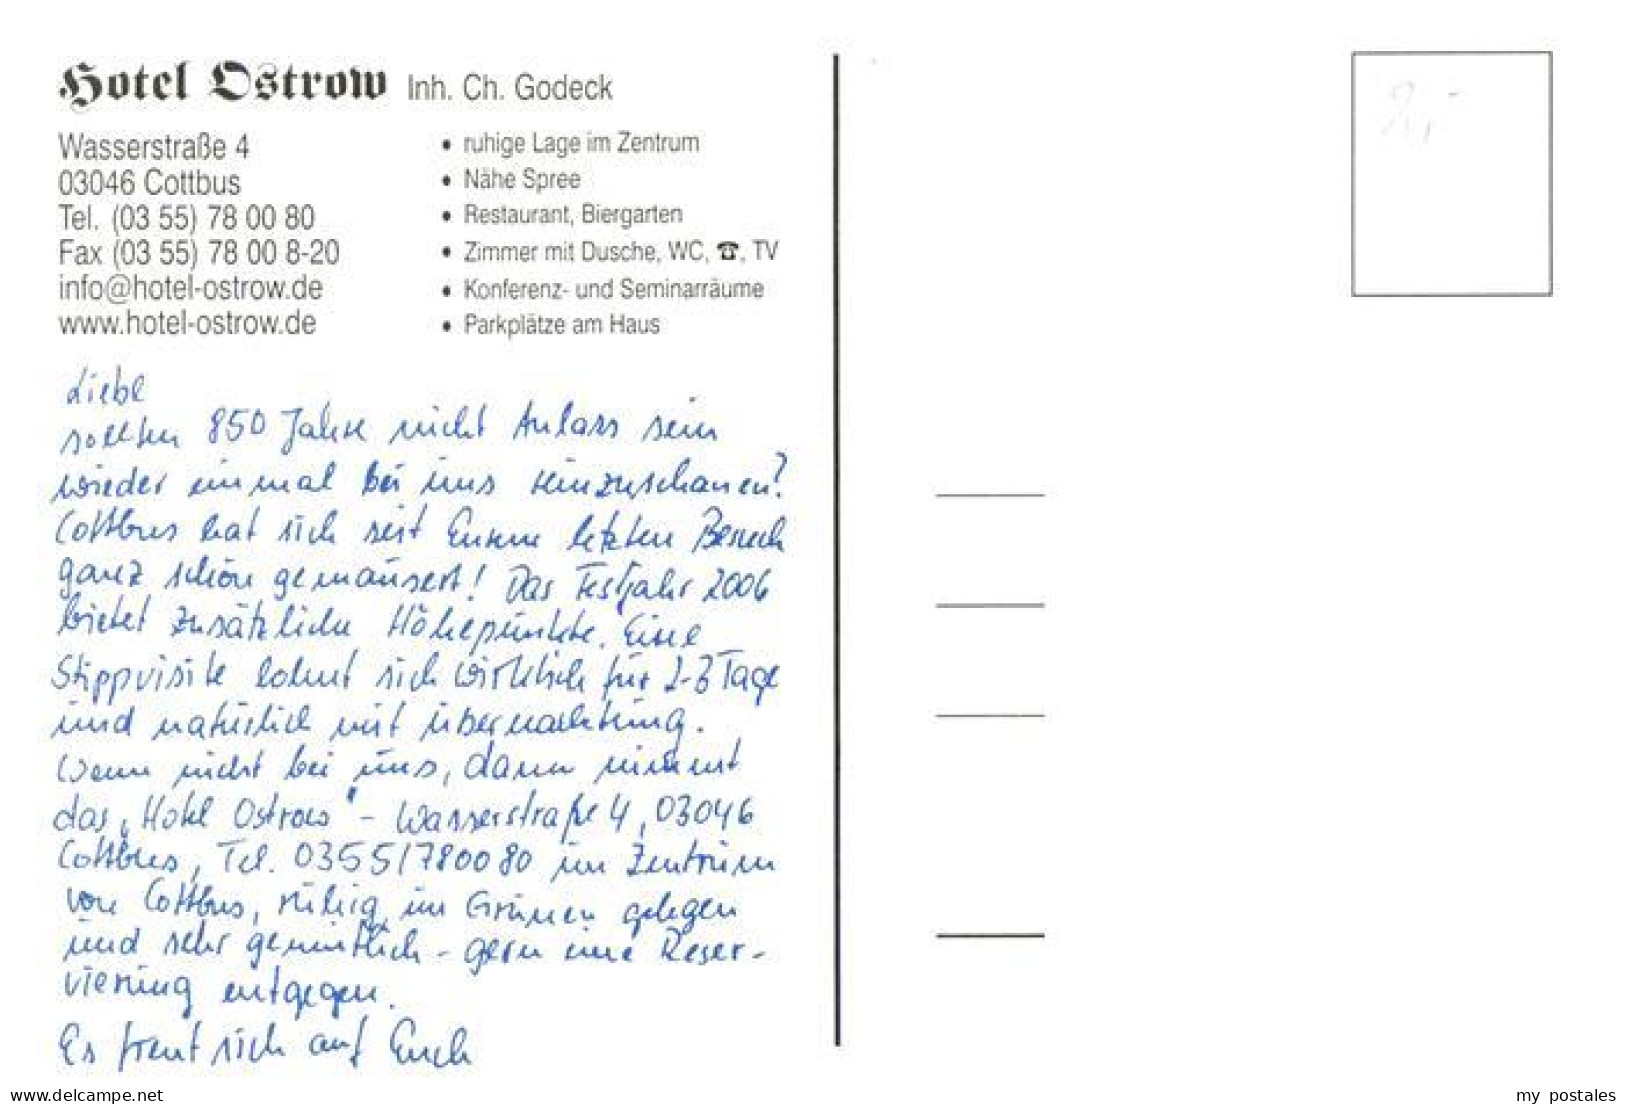 Hotel Ostrow Inh. Ch. Godeck
Wasserstraße 4
03046 Cottbus
Tel. (03 55) 78 00 80
Fax (03 55) 78 00 8-20
info@hotel-ostrow.de
www.hotel-ostrow.de
• ruhige Lage im Zentrum
• Nähe Spree
• Restaurant, Biergarten
• Zimmer mit Dusche, WC, ☎, TV
• Konferenz- und Seminarräume
• Parkplätze am Haus
Liebe
sollten 850 Jahre nicht Anlass sein
wieder einmal bei uns reinzuschauen?
Cottbus hat sich seit Eurem letzten Besuch
ganz schön gemausert! Das Festjahr 2006
bietet zusätzliche Höhepunkte. Eine
Stippvisite lohnt sich wirklich für 2-3 Tage
und natürlich mit Übernachtung.
Wenn nicht bei uns, dann nimmt
das „Hotel Ostrow" - Wasserstraße 4, 03046
Cottbus, Tel. 0355/780080 im Zentrum
von Cottbus, ruhig im Grünen gelegen
und sehr gemütlich - gern eine Reser-
vierung entgegen.
Es freut sich auf Euch
oldthing.de
my postales